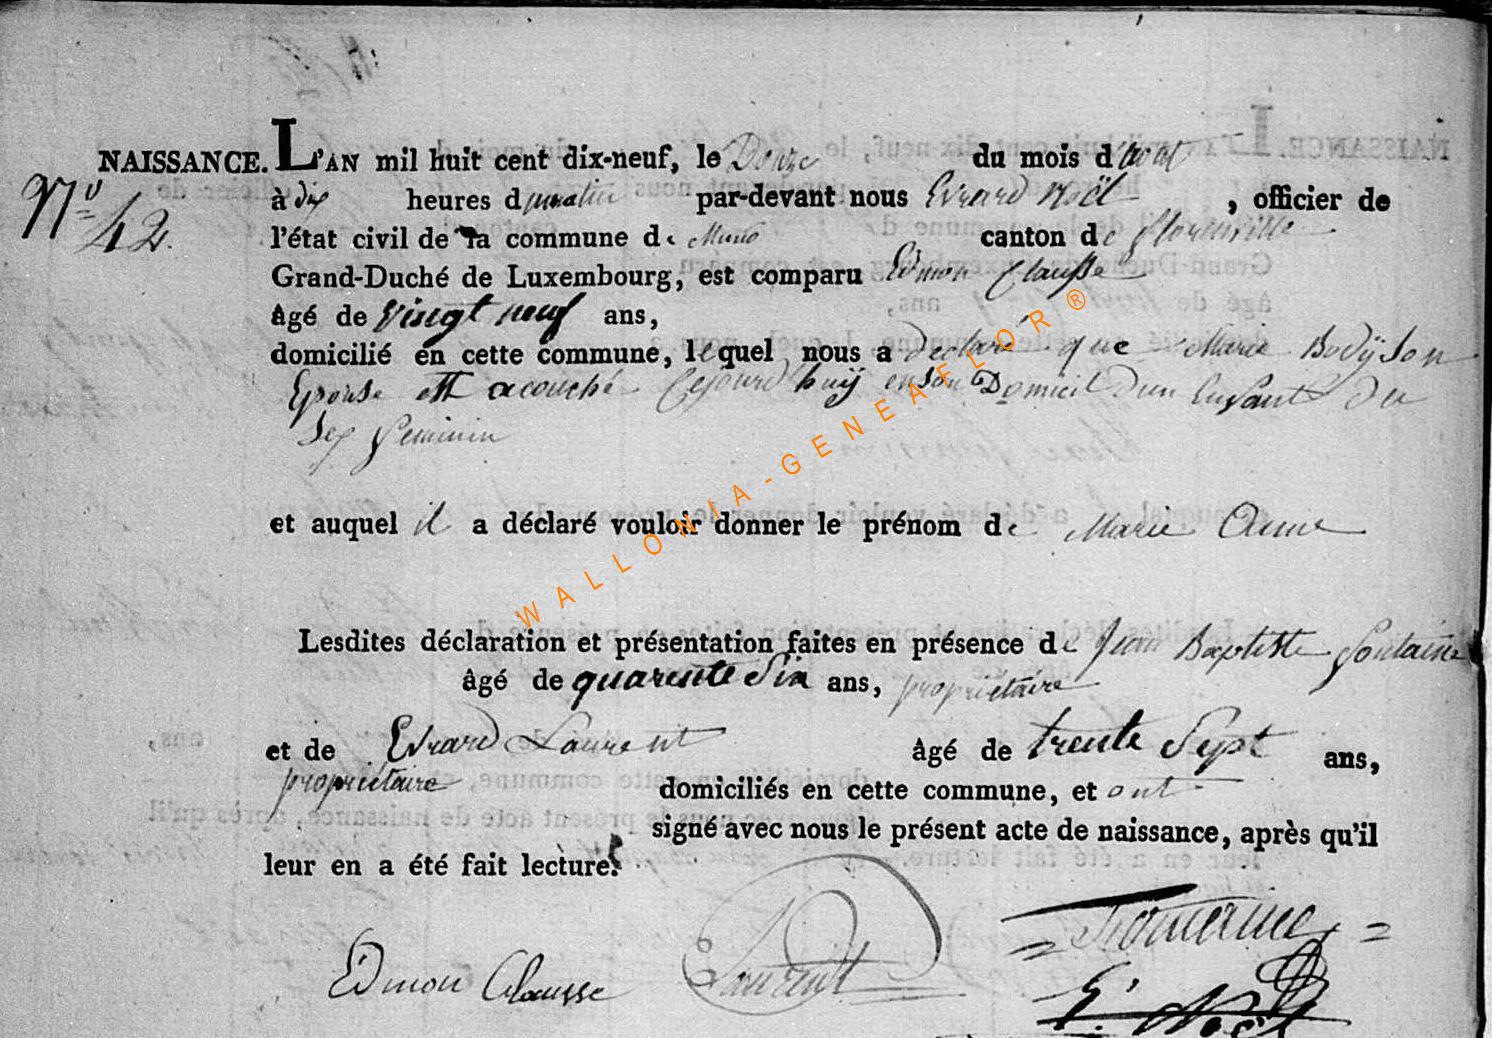 NAISSANCE. L'AN mil huit cent dix-neuf, le Douze du mois d'aout
N° 42.
à dix heures du matin par-devant nous Evrard Noël, officier de
l'état civil de la commune de Muno canton de Florenville
Grand-Duché de Luxembourg, est comparu Edmon Clausse
âgé de vingt neuf ans,
domicilié en cette commune, lequel nous a declaré que Marie Bodÿson
Epouse est acouché cejourdhuÿ en son Domicil dun Enfant du
Sex feminin
et auquel il a déclaré vouloir donner le prénom de Marie Anne
Lesdites déclaration et présentation faites en présence de Jean Baptiste Fontaine
âgé de quarente Six ans, propriétaire
et de Evrard Laurent âgé de trente Sept ans,
propriétaire domiciliés en cette commune, et ont
signé avec nous le présent acte de naissance, après qu'il
leur en a été fait lecture.
Edmon Clausse Laurent
E. Noël
WALLONIA-GENEAFLOR®